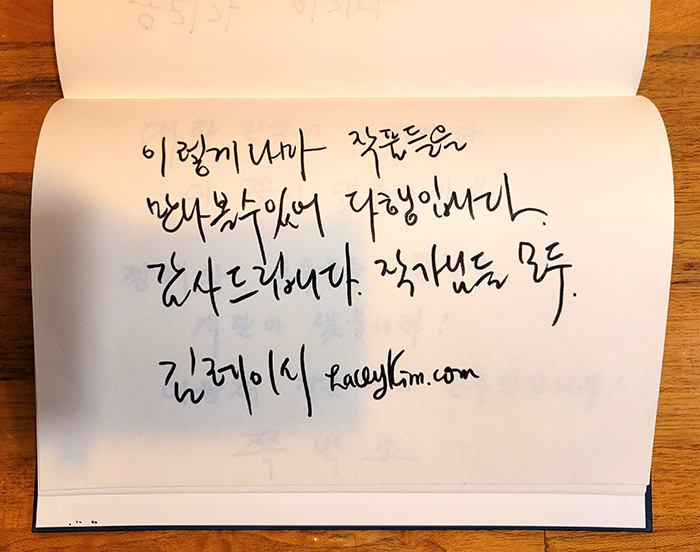 이렇게나마 작품들을
만나볼수있어 다행입니다.
감사드립니다. 작가님들 모두.
김레이시 LaceyKim.com